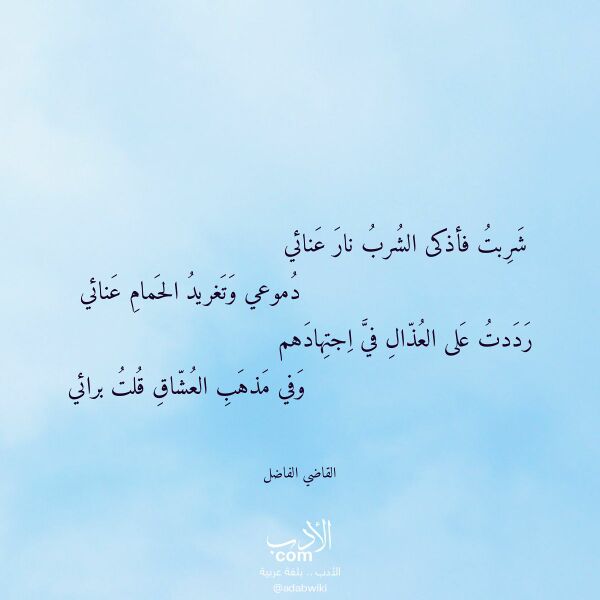 شَرِبتُ فأذكى الشُربُ نارَ عَنائي
دُموعي وَتَغريدُ الحَمامِ عَنائي
رَدَدتُ عَلى العُذّالِ فيَّ اِجتِهادَهم
وَفي مَذهَبِ العُشّاقِ قُلتُ برائي
القاضي الفاضل
الأدب
.com
الأدب .. بلغة عربية
@adabwiki